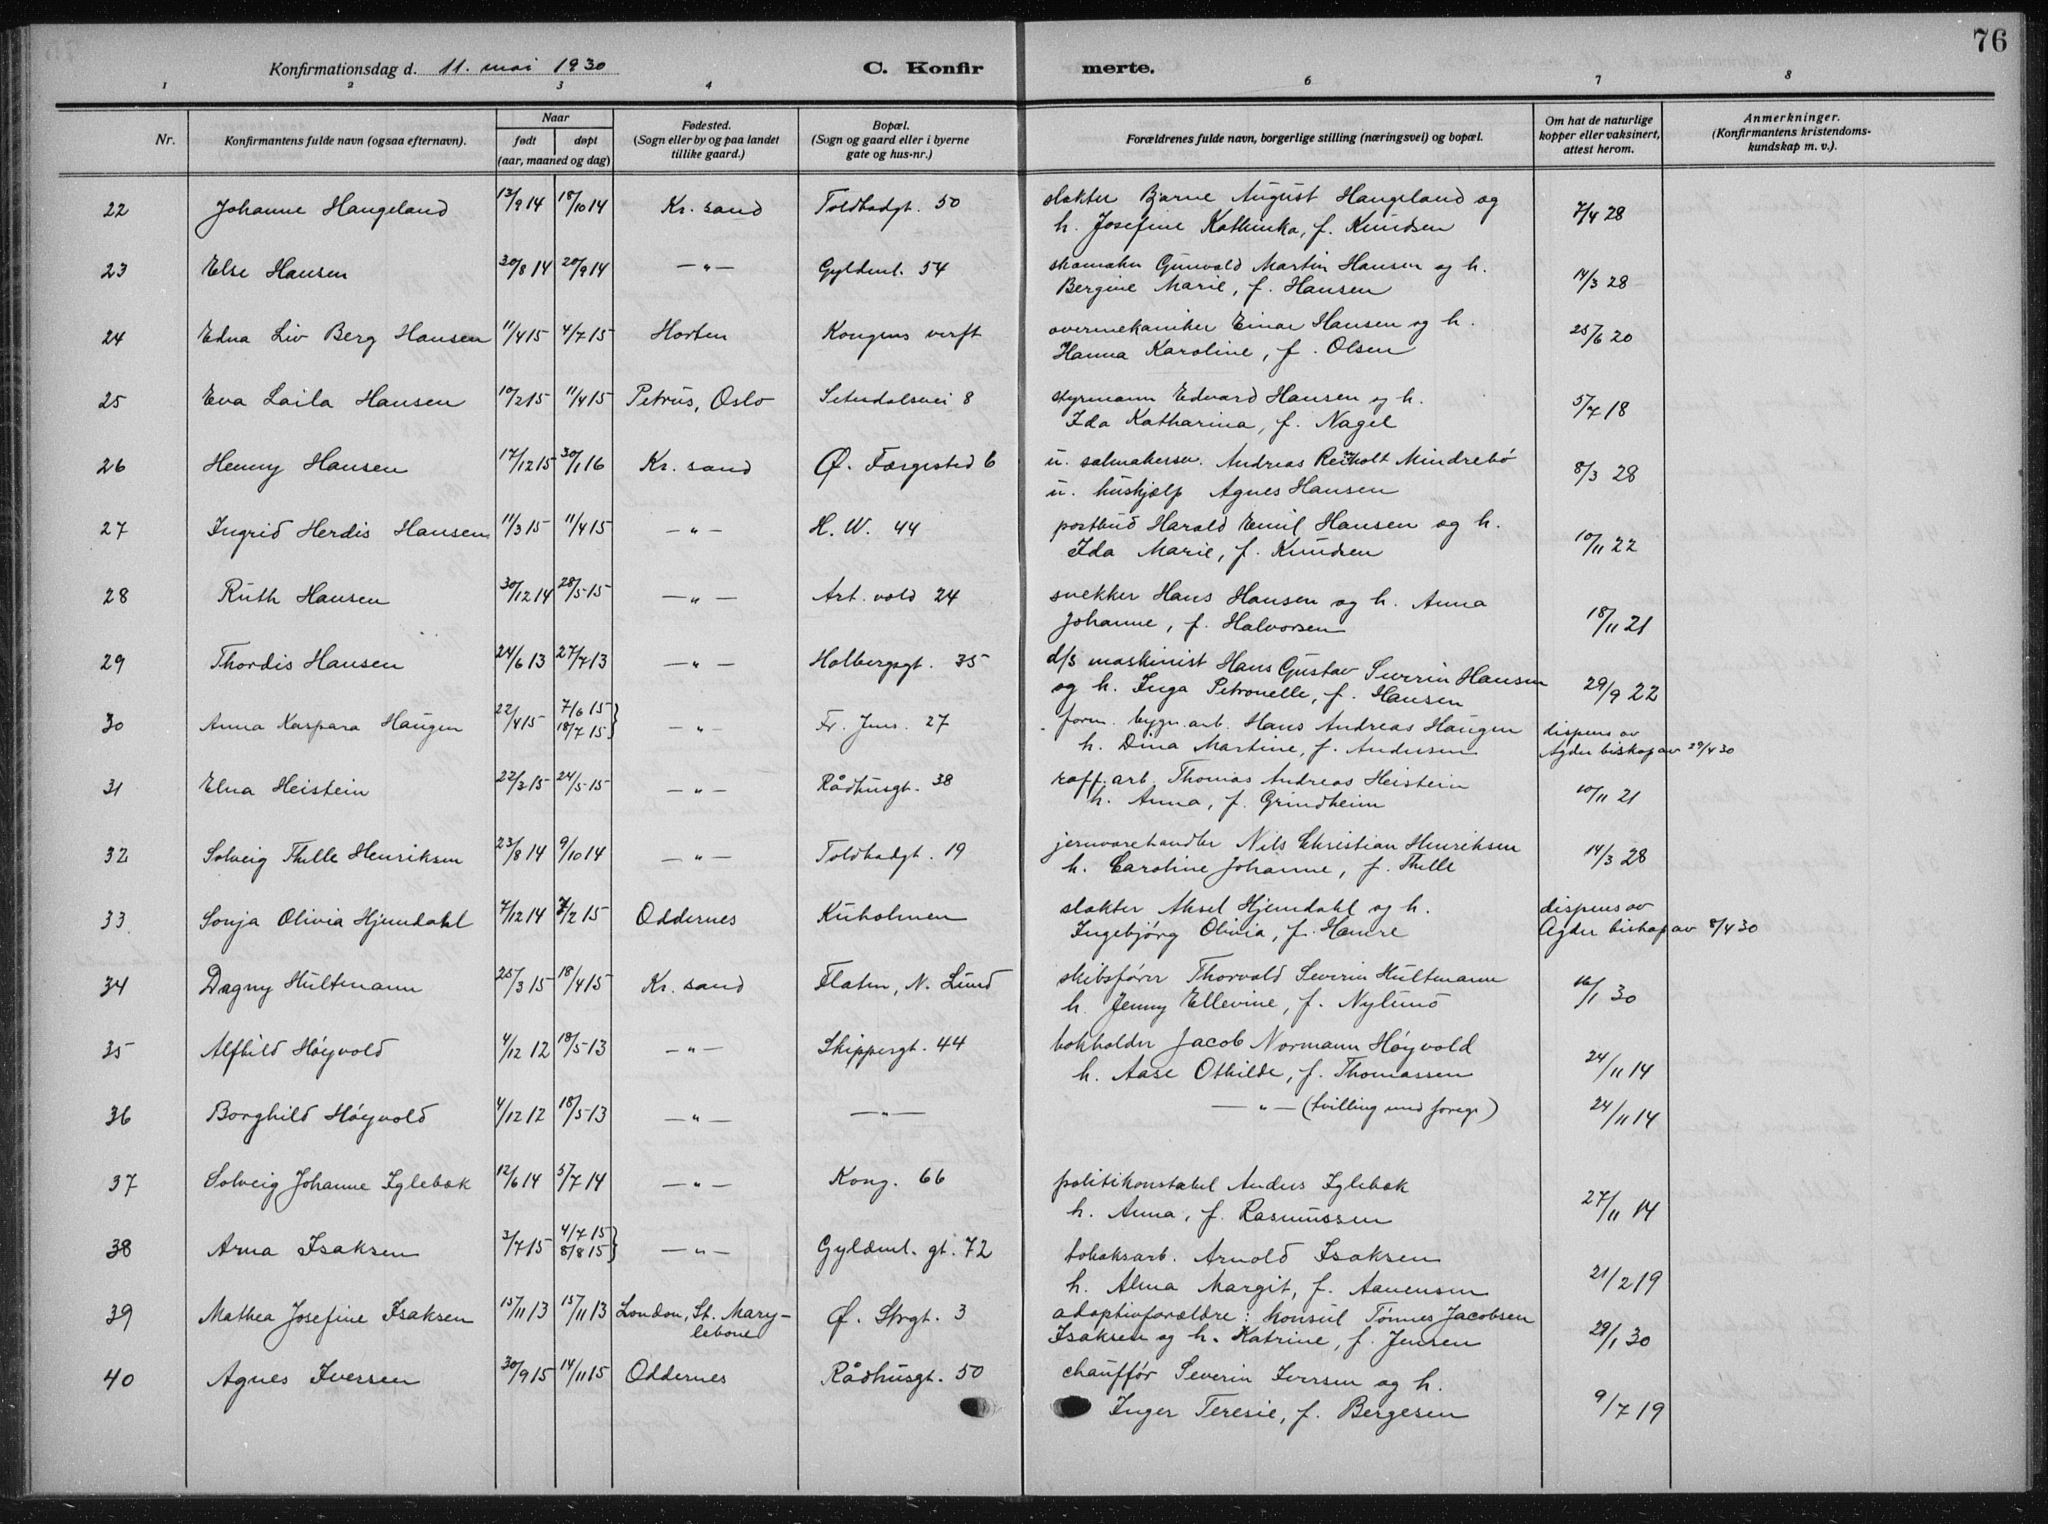 76
Konfirmationsdag d. 11. mai 1930 C. Konfirmerte.
1 2 3 4 6 7 8
Nr. Konfirmantens fulde navn (ogsaa efternavn). Naar født døpt (aar, maaned og dag) Fødested. (Sogn eller by og paa landet tillike gaard.) Bopæl. (Sogn og gaard eller i byerne gate og hus-nr.) Forældrenes fulde navn, borgerlige stilling (næringsvei) og bopæl. Om hat de naturlige kopper eller vaksinert, attest herom. Anmerkninger. (Konfirmantens kristendomskundskap m. v.).
22 Johanne Haugeland 13/9 14 18/10 14 Kr. sand Toldbodgt. 50 slakter Bjarne August Haugeland og
h. Josefine Kathinka, f. Knudsen 7/4 28
23 Else Hansen 30/8 14 20/9 14 —„— Gyldenl. 54 skomaker Gunvald Martin Hansen og h.
Bergine Marie, f. Hansen 14/3 28
24 Edna Liv Berg Hansen 11/4 15 4/7 15 Horten Kongens verft overmekaniker Einar Hansen og h.
Hanna Karoline, f. Olsen 25/6 20
25 Eva Laila Hansen 10/2 15 11/4 15 Petrus, Oslo Setesdalsvei 8 styrmann Edvard Hansen og h.
Ida Katharina, f. Nagel 5/7 18
26 Henny Hansen 17/12 15 30/1 16 Kr. sand Ø. Færgested 6 u. salmakersv. Andreas Reinholt Mindrebø
u. hushjælp Agnes Hansen 8/3 28
27 Ingrid Herdis Hansen 11/3 15 11/4 15 —„— H. W. 44 postbud Harald Emil Hansen og h.
Ida Marie, f. Knudsen 10/11 22
28 Ruth Hansen 30/12 14 28/5 15 —„— Art. vold 24 snekker Hans Hansen og h. Anna
Johanne, f. Halvorsen 18/11 21
29 Thordis Hansen 24/6 13 27/7 13 —„— Holbergsgt. 35 d/s maskinist Hans Gustav Severin Hansen
og h. Inga Petronelle, f. Hansen 29/9 22
30 Anna Kaspara Haugen 22/4 15 7/6 15 18/7 15 } —„— Fr. Jens. 27 form. bygn. arb. Hans Andreas Haugen
h. Dina Martine, f. Andersen dispens av Agder biskop av 29/4 30
31 Elna Heistein 22/3 15 24/5 15 —„— Rådhusgt. 38 raff. arb. Thomas Andreas Heistein
h. Anna, f. Grindheim 10/11 21
32 Solveig Thille Henriksen 23/8 14 9/10 14 —„— Toldbodgt. 19 jernvarehandler Nils Christian Henriksen
h. Caroline Johanne, f. Thille 14/3 28
33 Sonja Olivia Hjemdahl 7/12 14 7/2 15 Oddernes Kuholmen slakter Aksel Hjemdahl og h.
Ingebjørg Olivia, f. Hamre dispens av Agder biskop av 8/4 30
34 Dagny Hultmann 25/3 15 18/4 15 Kr. sand Flaten, N. Lund skibsfører Thorvald Severin Hultmann
h. Jenny Ellevine, f. Nylund 16/1 30
35 Alfhild Høyvold 4/12 12 18/5 13 —„— Skippergt. 44 bokholder Jacob Normann Høyvold
h. Aase Othilde, f. Thomassen 24/11 14
36 Borghild Høyvold 4/12 12 18/5 13 —„— —„— —„— (tvilling med foreg.) 24/11 14
37 Solveig Johanne Iglebæk 12/6 14 5/7 14 —„— Kong. 66 politikonstabel Anders Iglebæk
h. Anna, f. Rasmussen 27/11 14
38 Arna Isaksen 3/7 15 4/7 15 8/8 15 } —„— Gyldenl. gt. 72 tobaksarb. Arnold Isaksen
h. Alma Margit, f. Aanensen 21/2 19
39 Mathea Josefine Isaksen 15/11 13 15/11 13 London, St. Marylebone Ø. Strgt. 3 adoptivforældre: konsul Tønnes Jacobsen
Isaksen og h. Katrine, f. Jensen 29/1 30
40 Agnes Iversen 30/9 15 14/11 15 Oddernes Rådhusgt. 50 chauffør Severin Iversen og h.
Inger Teresie, f. Bergesen 9/7 19